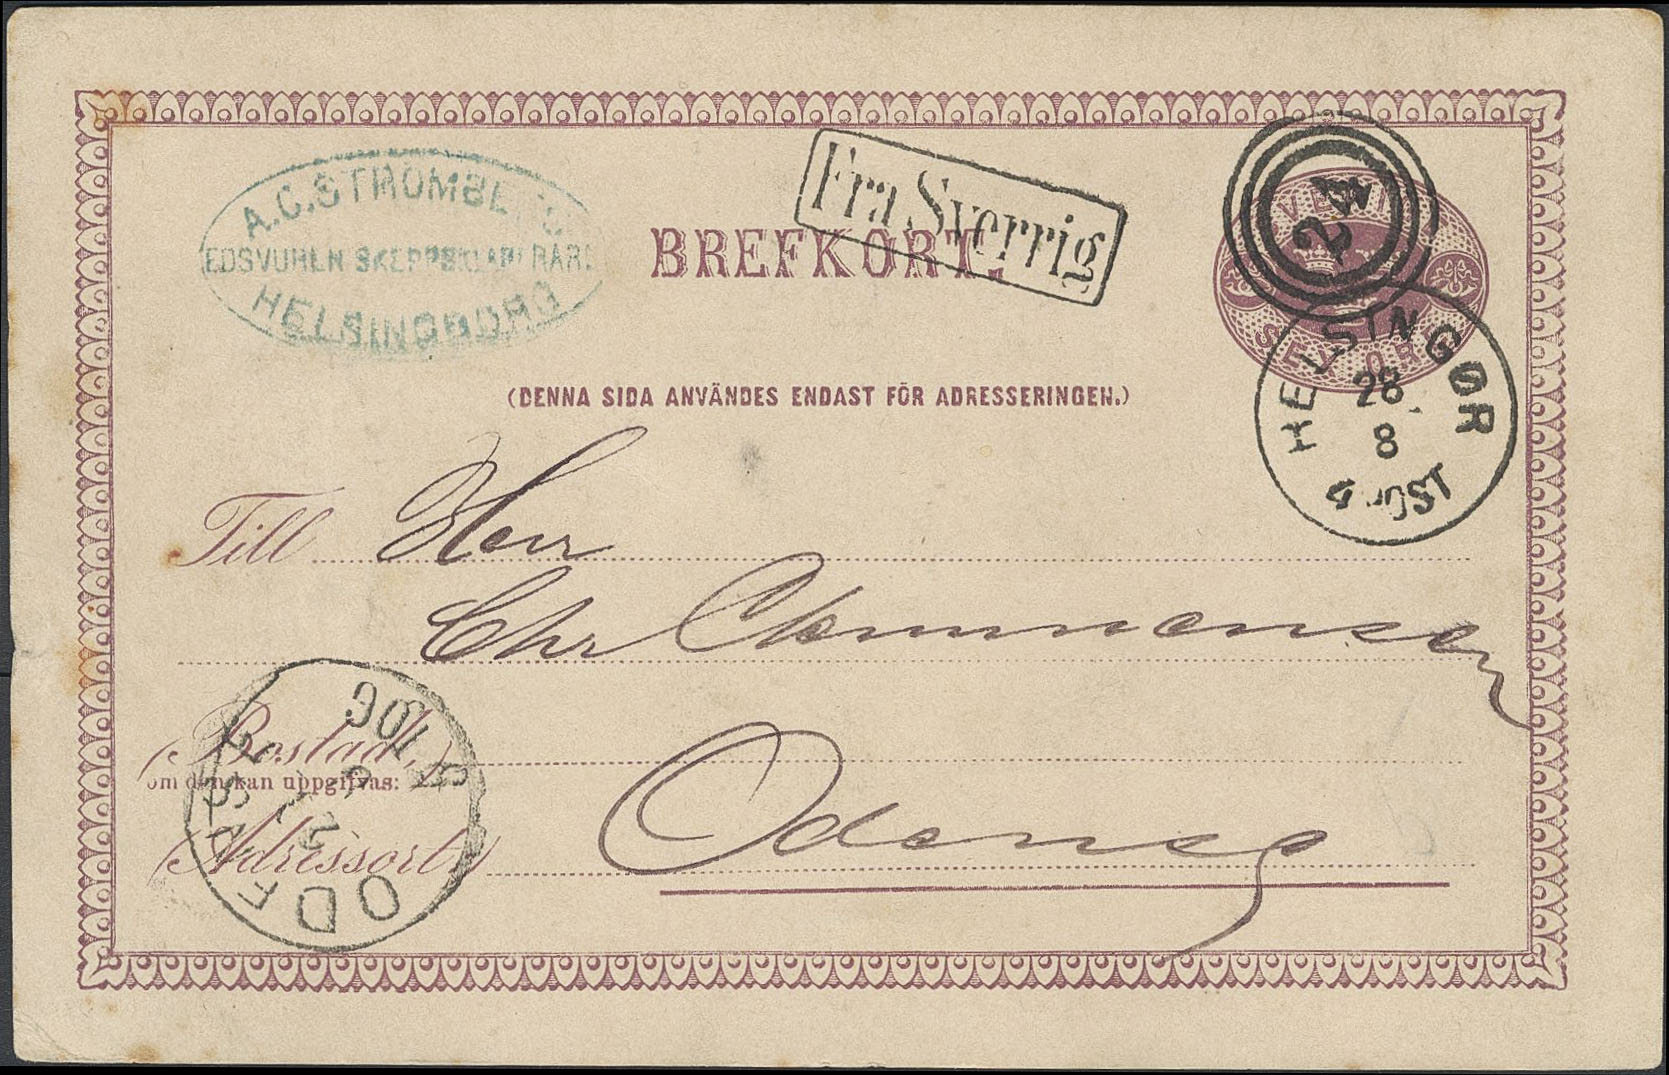 A. C. STRÖMBERG
EDSVUREN SKEPPSKLARERARE
HELSINGBORG
BREFKORT.
Fra Sverrig
24
SVERIGE
SEX ÖRE
HELSINGØR
28
8
4 POST
(DENNA SIDA ANVÄNDES ENDAST FÖR ADRESSERINGEN.)
Till Herr
Chr Clemmensen
(Bostad,)
om den kan uppgifvas:
(Adressort) Odense
ODENSE